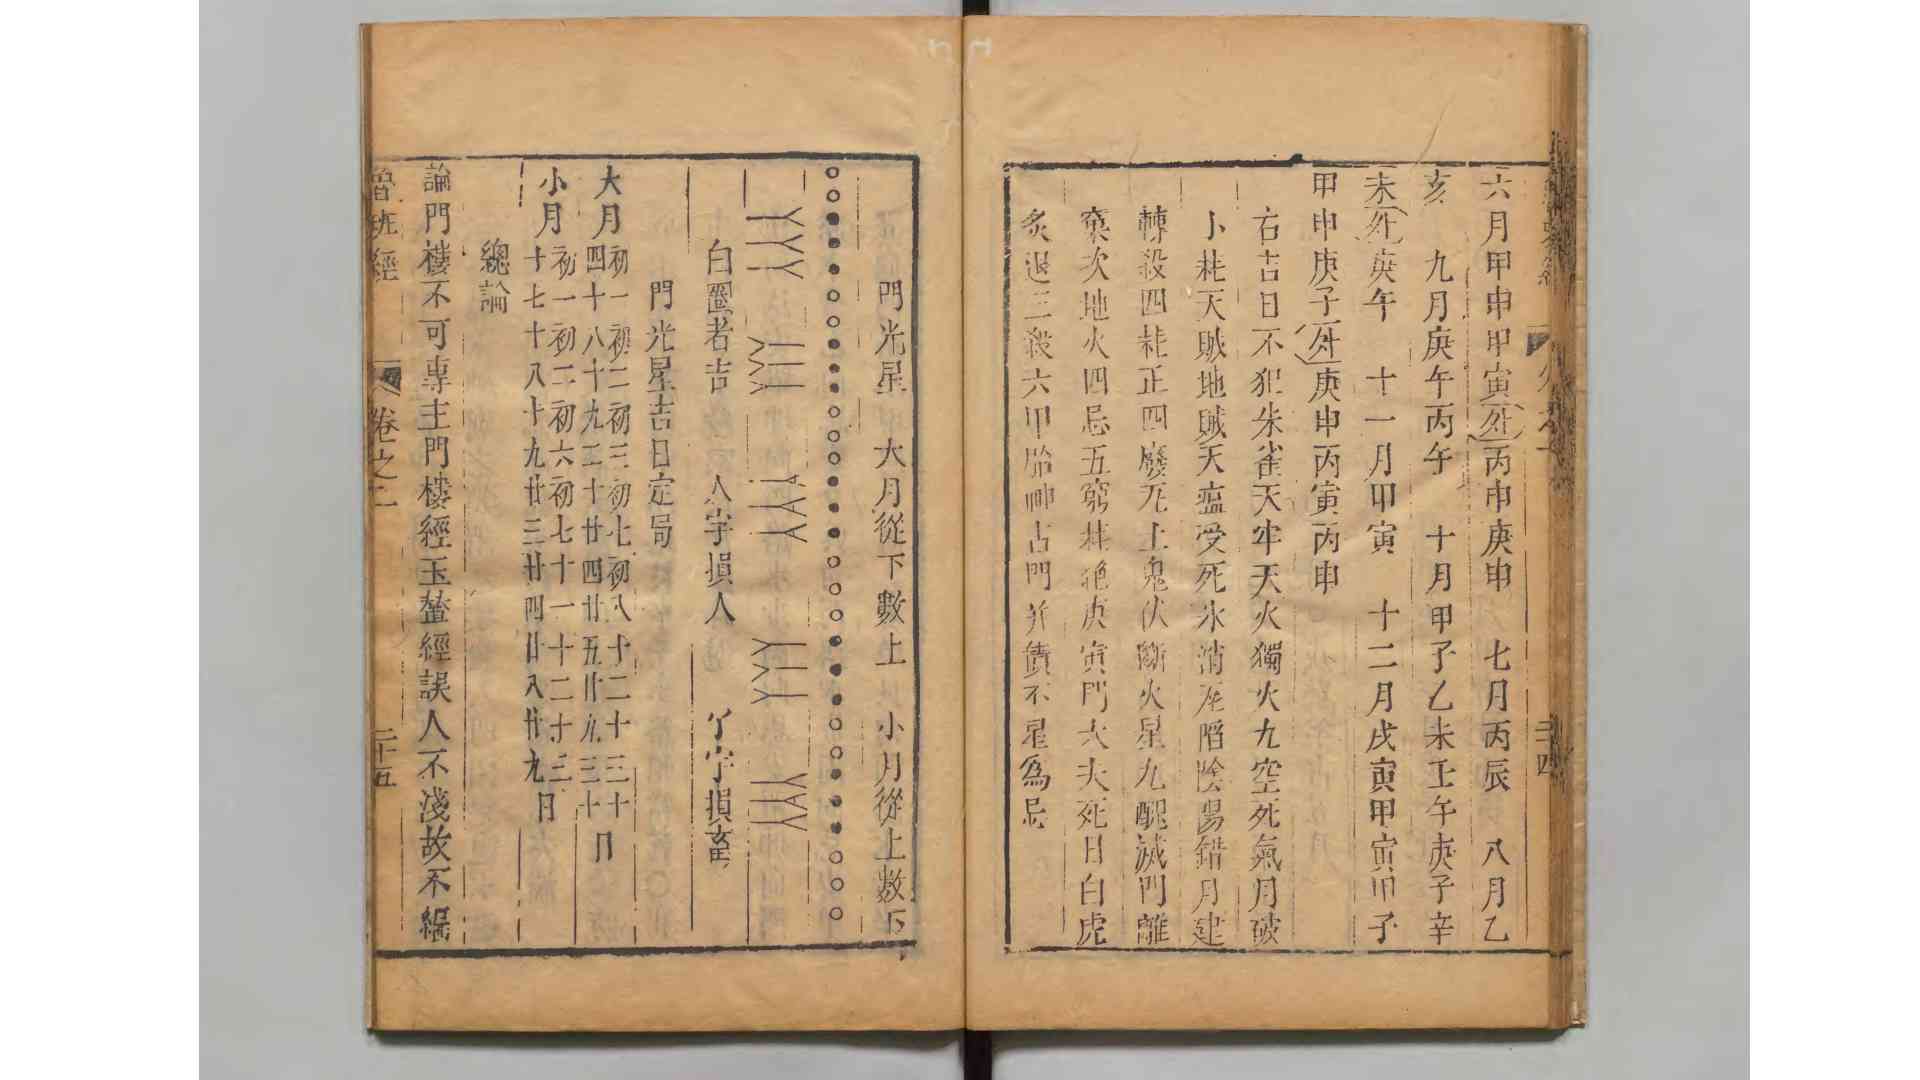 六月甲申甲寅死丙申庚申 七月丙辰 八月乙
亥 九月庚午丙午 十月甲子乙未壬午庚子辛
未死庚午 十一月甲寅 十二月戌寅甲寅甲子
甲申庚子死庚申丙寅丙申
右吉日不犯朱雀天牢天火獨火九空死氣月破
小耗天賊地賊天瘟受死氷消瓦陷陰陽錯月建
轉殺四耗正四廢九土鬼伏斷火星九醜滅門離
窠次地火四忌五窮耗絕庚寅門大夫死日白虎
炙退三殺六甲胎神占門并債不星為忌
門光星 大月從下數上 小月從上數下
○○●●●○○●●●○○○●●●○○●●●○○○●●●○○○
丫丫丨 丨丨人 丨丫丫 人丨人 丫丫丨
白圈者吉 人字損人 丫字損畜
門光星吉日定局
大月初一初二初三初七初八十二十三十
四十八十九二十廿四廿五廿九三十日
小月初一初二初六初七十一十二十三
十七十八十九廿三廿四廿八廿九日
總論
論門樓不可專主門樓經玉鰲經誤人不淺故不編
魯班經 卷之二 二十五